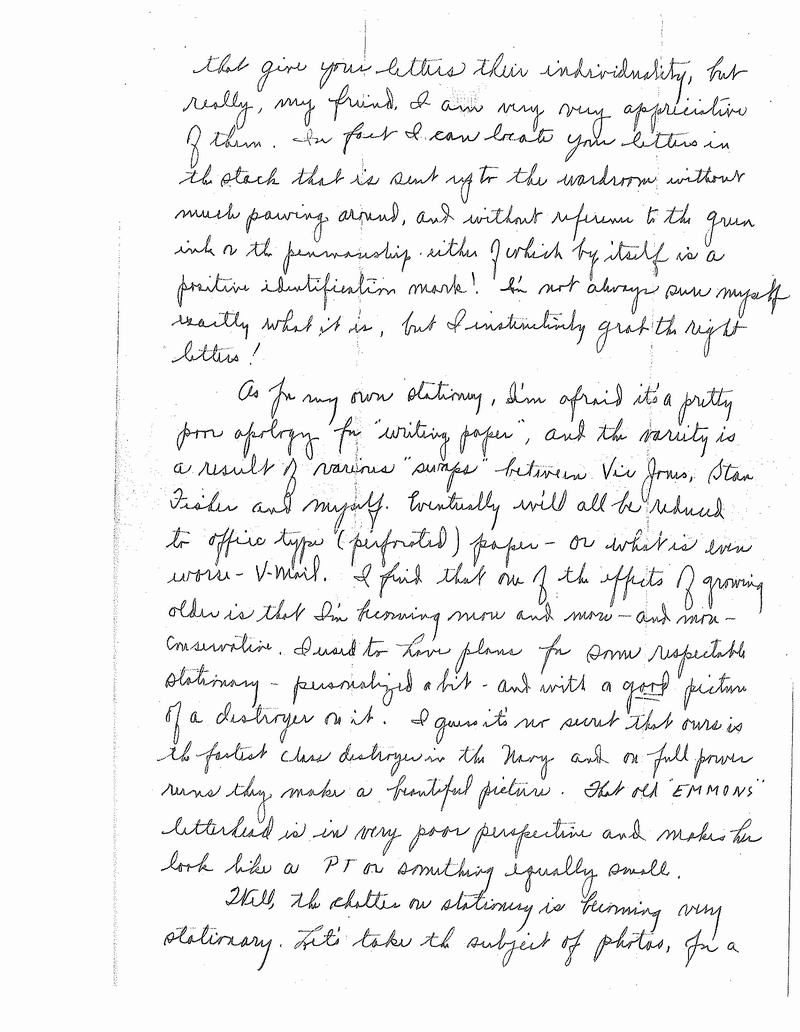 that give your letters their individuality, but
really, my friend, I am very very appreciative
of them. In fact I can locate your letters in
the stack that is sent up to the wardroom without
much pawing around, and without reference to the green
ink or the penmanship either of which by itself is a
positive identification mark! I'm not always sure myself
exactly what it is, but I instinctively grab the right
letters!
As for my own stationery, I'm afraid it's a pretty
poor apology for "writing paper", and the variety is
a result of various "swaps" between Vic Jones, Stan
Fisher and myself. Eventually we'll all be reduced
to office type (perforated) paper - or what is even
worse - V-Mail. I find that one of the effects of growing
older is that I'm becoming more and more - and more -
conservative. I used to have plans for some respectable
stationary - personalized a bit - and with a good picture
of a destroyer on it. I guess it's no secret that ours is
the fastest class destroyer in the Navy and on full power
runs they make a beautiful picture. That old "EMMONS"
letterhead is in very poor perspective and makes her
look like a PT or something equally small.
Well, the chatter on stationery is becoming very
stationary. Let's take the subject of photos, for a